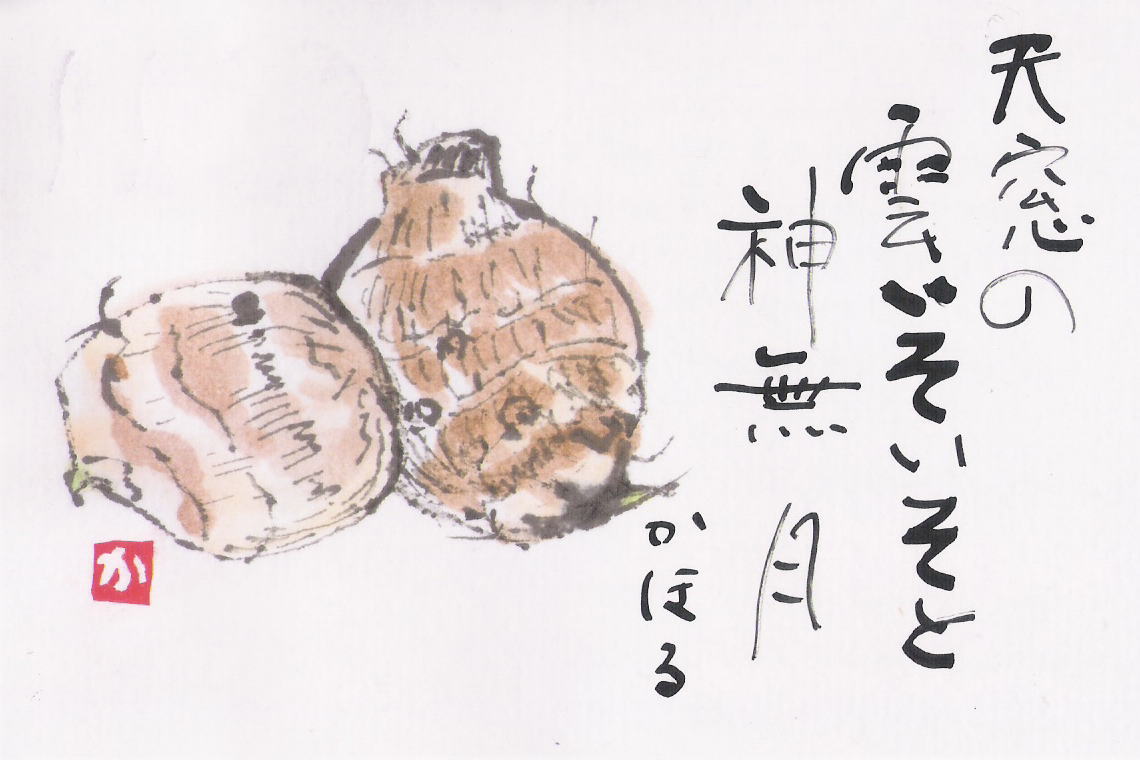 天窓の
雲いそいそと
神無月
かほる
か